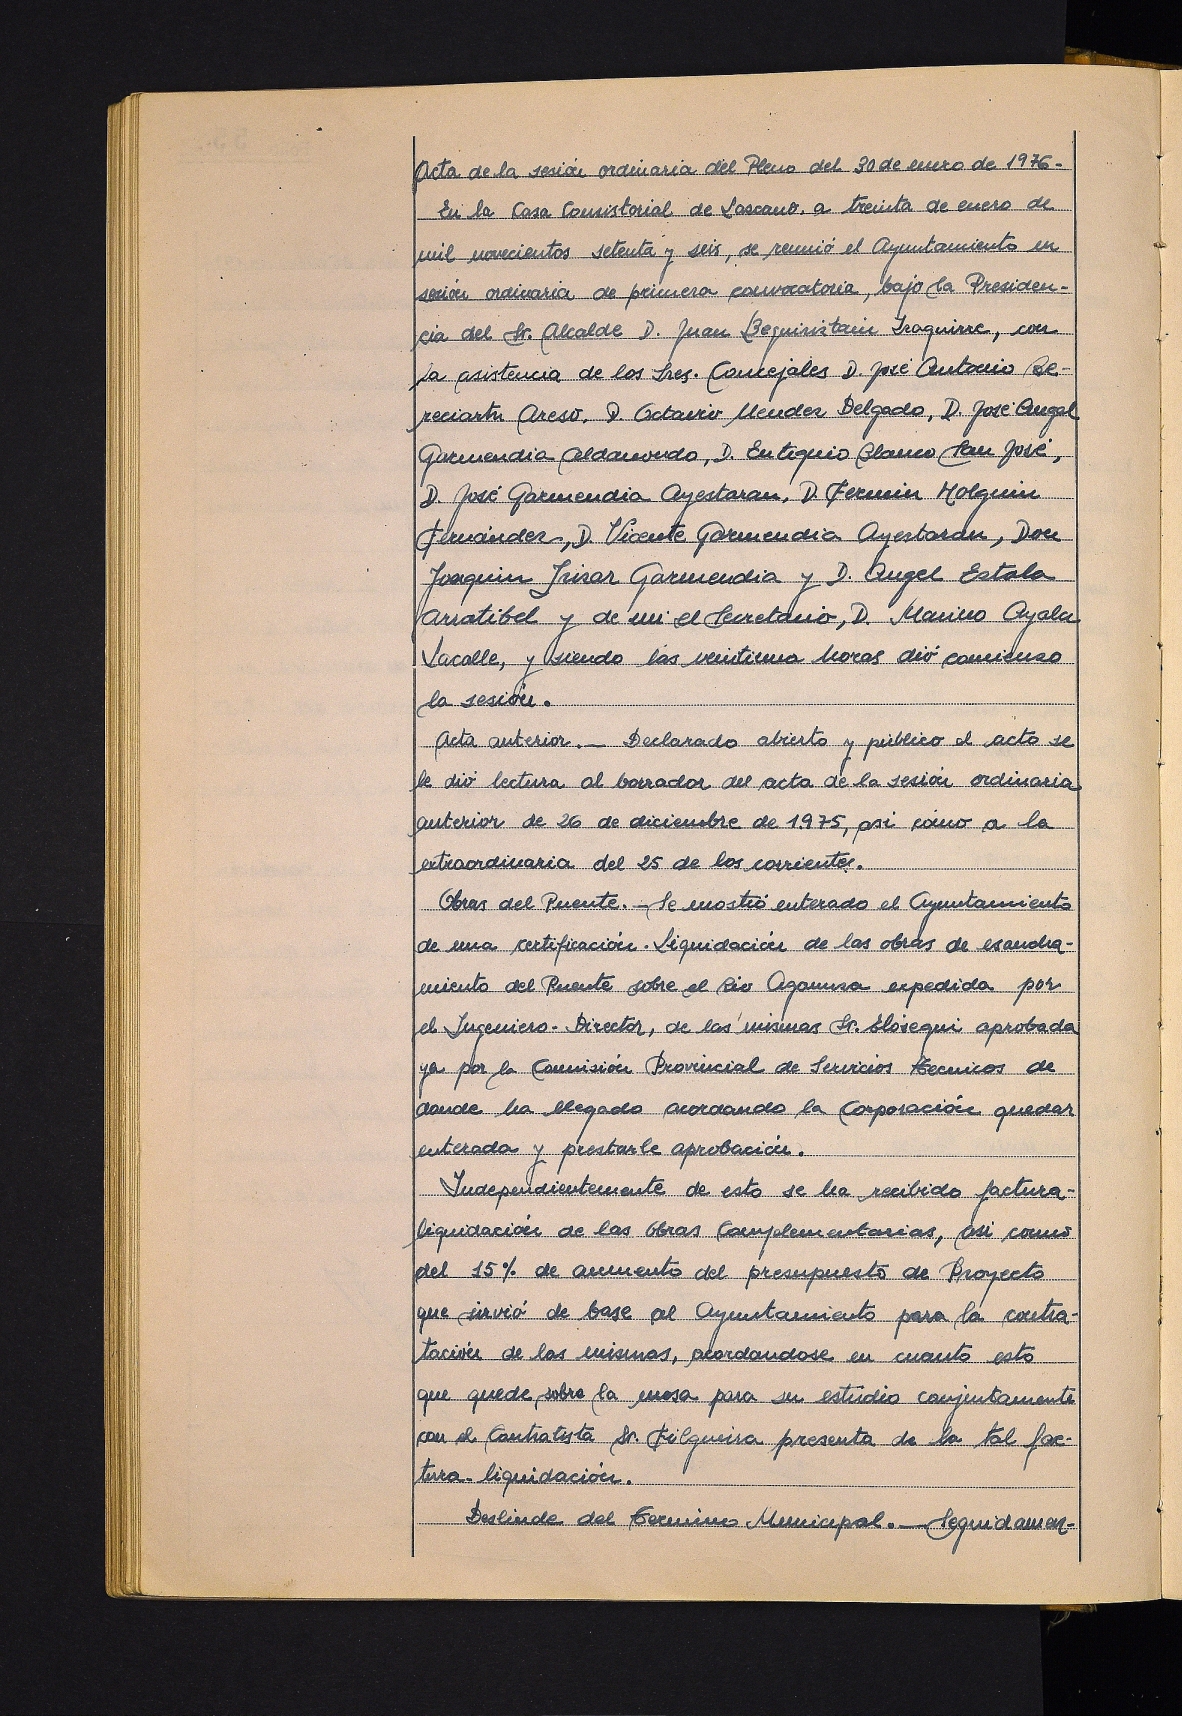 Acta de la sesión ordinaria del Pleno del 30 de enero de 1976-
En la Casa Consistorial de Lazcano, a treinta de enero de
mil novecientos setenta y seis, se reunió el Ayuntamiento en
sesión ordinaria de primera convocatoria, bajo la Presiden-
cia del Sr. Alcalde D. Juan Beguiristain Izaguirre, con
la asistencia de los Sres. Concejales D. José Antonio Be-
reciartu Areso, D. Octavio Mendez Delgado, D. José Angel
Garmendia Aldamondo, D. Eutiquio Blanco San José,
D. José Garmendia Ayestaran, D. Fermin Holguin
Fernández, D. Vicente Garmendia Ayestaran, Don
Joaquin Irizar Garmendia y D. Angel Estala
Arratibel y de mi el Secretario, D. Marino Ayala
Lacalle, y siendo las veintiuna horas dió comienzo
la sesión.
Acta anterior.— Declarado abierto y público el acto se
le dió lectura al borrador del acta de la sesión ordinaria
anterior de 26 de diciembre de 1.975, asi cómo a la
extraordinaria del 25 de los corrientes.
Obras del Puente.— Se mostró enterado el Ayuntamiento
de una certificación-Liquidación de las obras de esancha-
miento del Puente sobre el Rio Agaunza expedida por
el Ingeniero-Director, de las mismas Sr. Elósegui aprobada
ya por la Comisión Provincial de Servicios Tecnicos de
donde ha llegado acordando la Corporación quedar
enterada y prestarle aprobación.
Independientemente de esto se ha recibido factura-
liquidación de las Obras Complementarias, asi como
del 15% de aumento del presupuesto de Proyecto
que sirvió de base al Ayuntamiento para la contra-
tación de las mismas, acordandose en cuanto esto
que quede sobre la mesa para su estudio conjuntamente
con el Contratista Sr. Filgueira presenta de la tal fac-
tura-liquidación.
Deslinde del Termino Municipal.— Seguidamen-